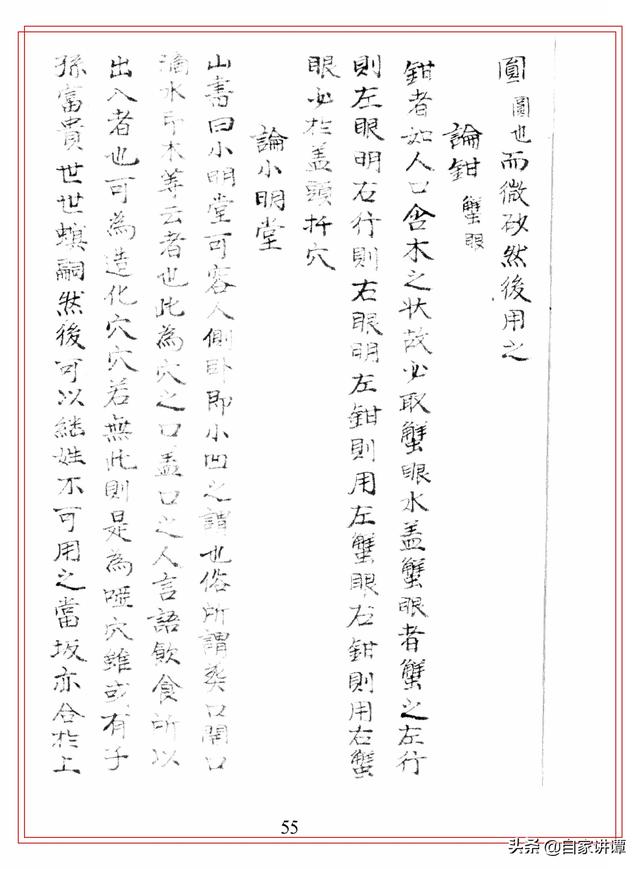 圓 圖也而微砂然後用之
論鉗 蟹眼
鉗者如人口含木之状故必取蟹眼水盖蟹眼者蟹之左行
則左眼明右行則右眼明左鉗則用左蟹眼右鉗則用右蟹
眼必於盖頭扦穴
論小明堂
山書曰小明堂可容人側卧即小凹之謂也俗所謂葬口開口
滴水印木等云者也此為穴之口盖口之人言語飲食所以
出入者也可為造化穴穴若無此則是為啞穴雖或有子
孫富貴世世螟嗣然後可以継姓不可用之當坂亦合於上
55
头条 @自家讲谭